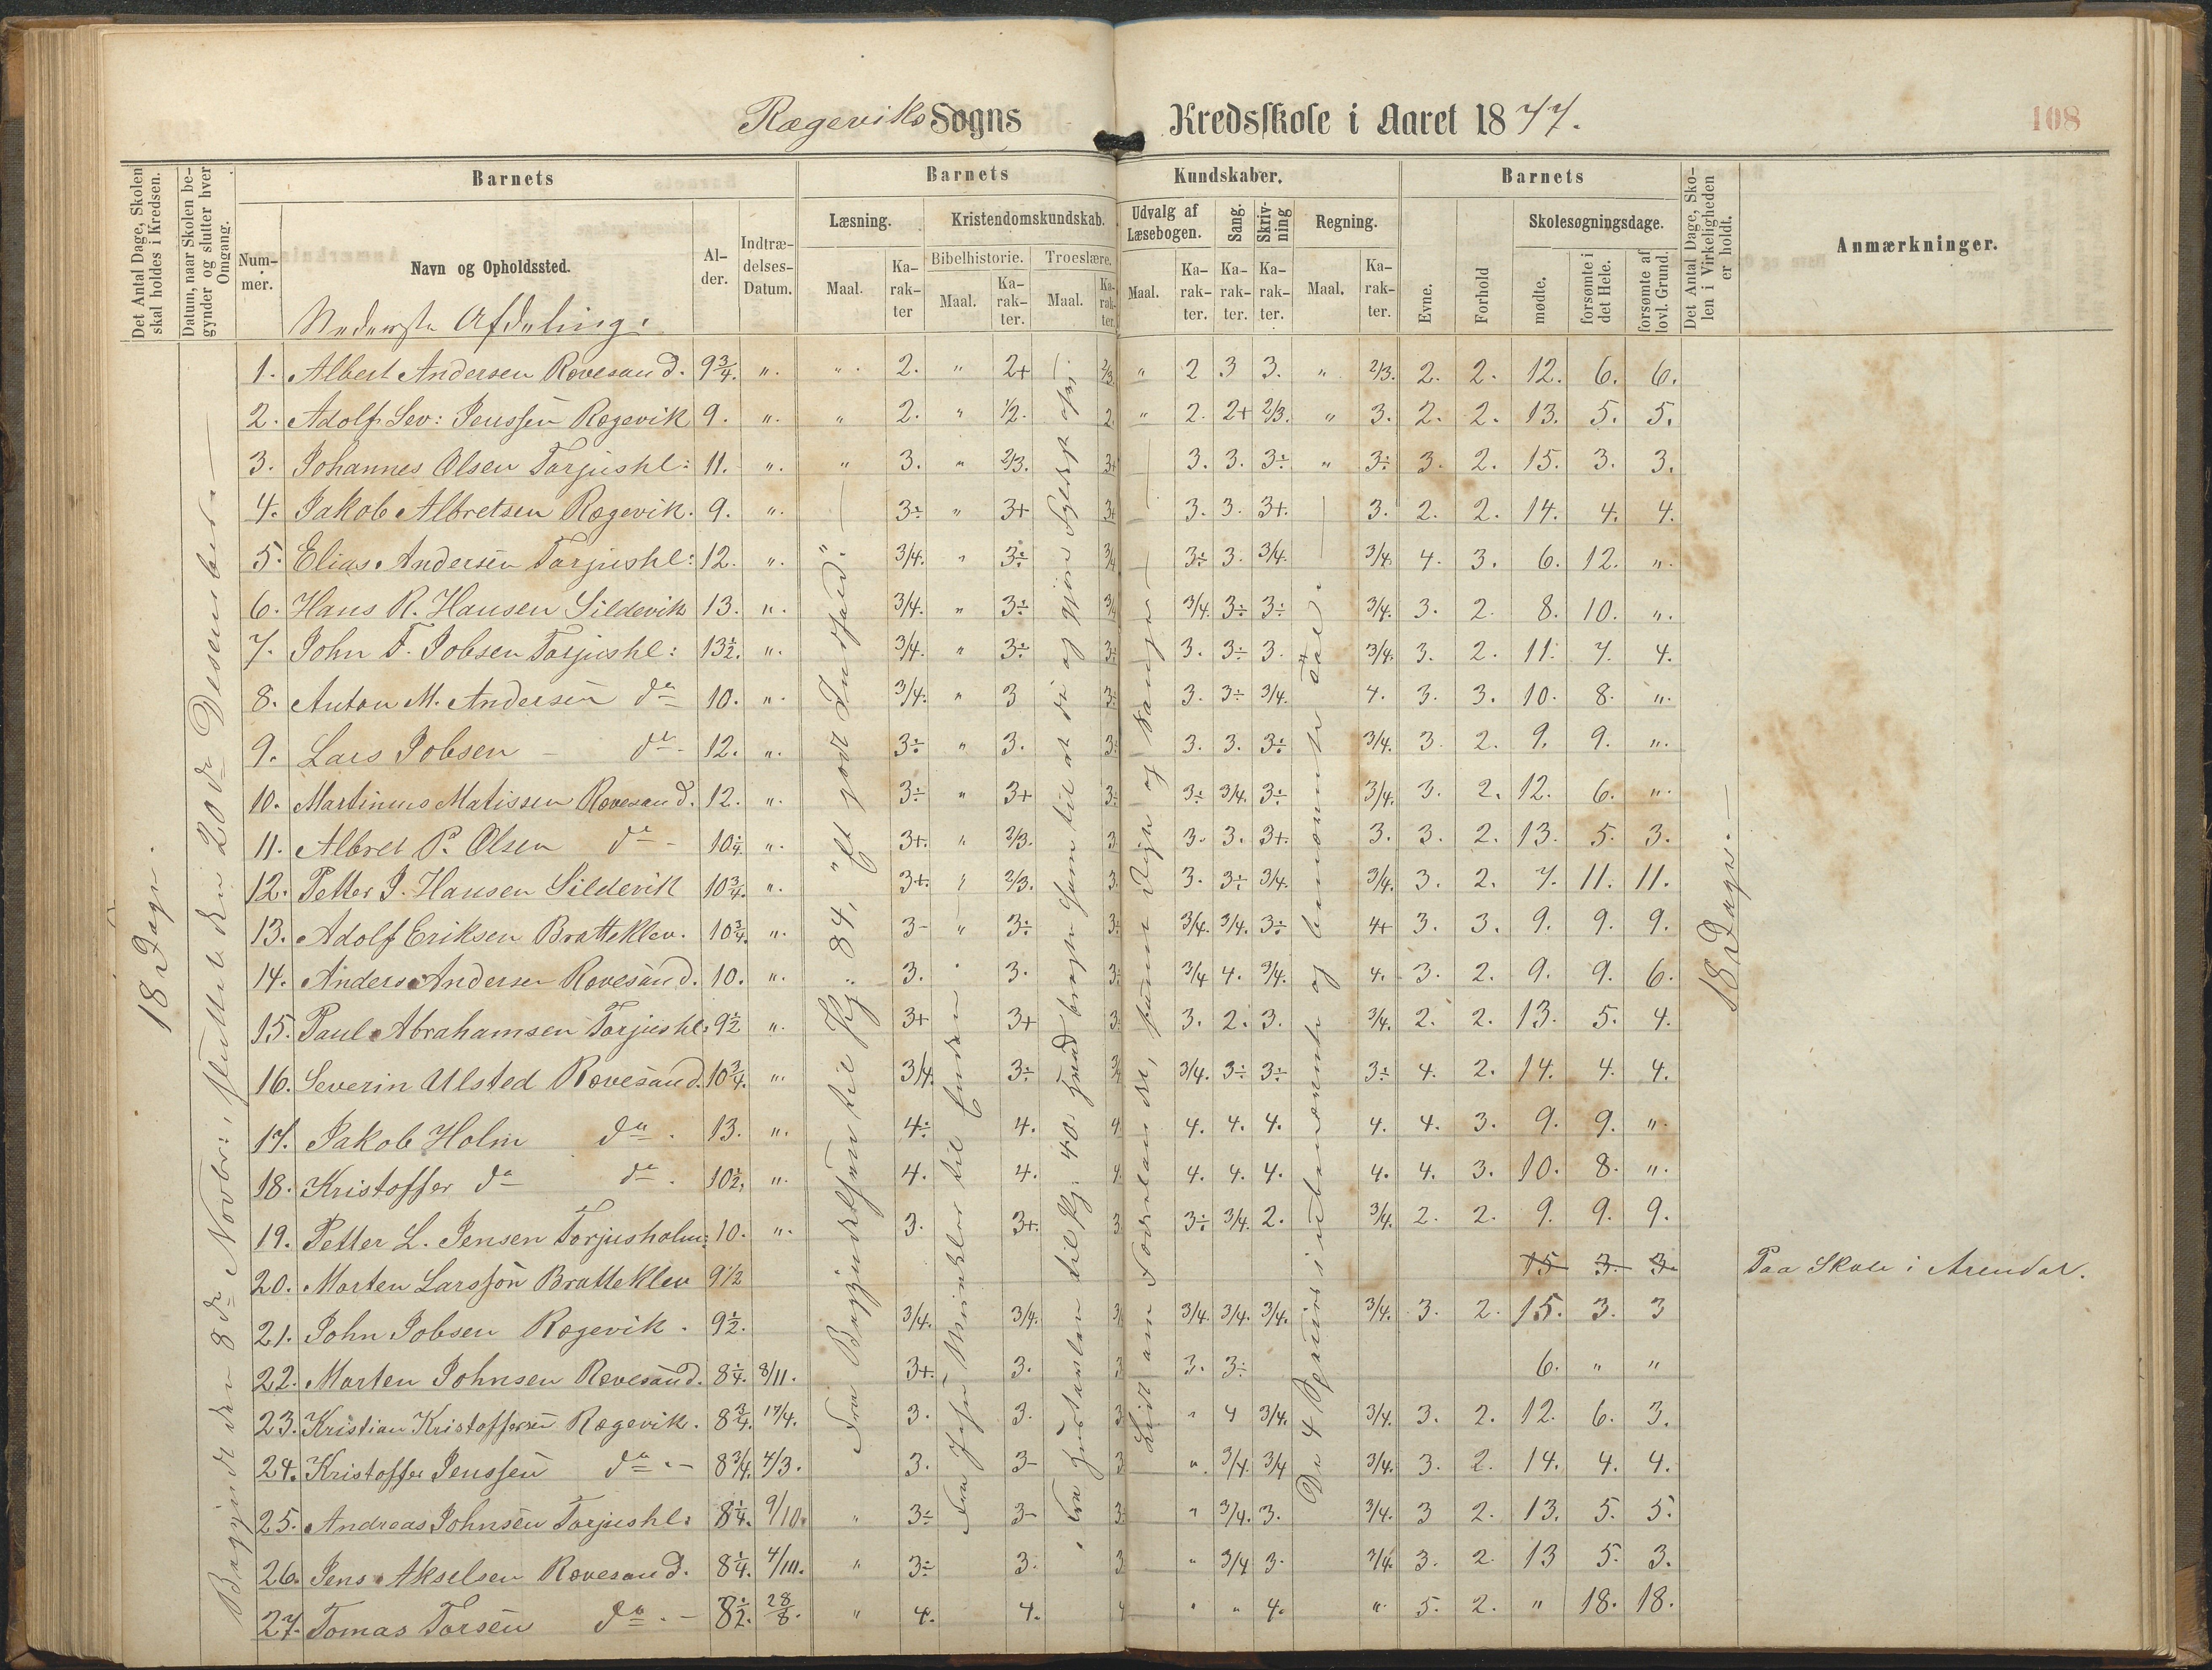 Rægeviks Sogns Kredsskole i Aaret 1877.
108
Det Antal Dage, Skolen skal holdes i Kredsen.
Datum, naar Skolen begynder og slutter hver Omgang.
Barnets
Nummer.
Navn og Opholdssted.
Alder.
Indtrædelses-Datum.
Barnets Kundskaber.
Læsning.
Maal.
Karakter
Kristendomskundskab.
Bibelhistorie.
Maal.
Karakter.
Troeslære.
Maal.
Karakter.
Udvalg af Læsebogen.
Maal.
Karakter.
Sang.
Karakter.
Skrivning
Karakter.
Regning.
Maal.
Karakter.
Barnets
Evne.
Forhold
Skolesøgningsdage.
mødte.
forsømte i det Hele.
forsømte af lovl. Grund.
Det Antal Dage, Skolen i Virkeligheden er holdt.
Anmærkninger.
Nederste Afdeling.
18 Dage.
Begyndt den 8de Novbr., sluttet den 20de Desember.
18 Dage.
1. Albert Andersen Rævesand. 9 3/4. ". ". 2. " 2+ 2/3. " 2 3 3. " 2/3. 2. 2. 12. 6. 6.
2. Adolf Sev: Jenssen Rægevik 9. ". " 2. " 1/2. 2. " 2. 2+ 2/3. " 3. 2. 2. 13. 5. 5.
3. Johannes Olsen Torjushl: 11. ". " 3. " 2/3. 3+ 3. 3. 3÷ " 3÷ 3. 2. 15. 3. 3.
4. Jakob Albretsen Rægevik. 9. ". 3÷ " 3+ 3+ 3. 3. 3+. 3. 2. 2. 14. 4. 4.
5. Elias Andersen Torjushl: 12. ". 3/4. " 3÷ 3/4 3÷ 3. 3/4. 3/4 4. 3. 6. 12. ".
6. Hans R. Hansen Sildevik 13. ". 3/4. " 3÷ 3/4 3/4. 3÷ 3÷ 3/4. 3. 2. 8. 10. ".
7. John F. Jobsen Torjushl: 13 1/2. ". 3/4. " 3÷ 3÷ 3. 3÷ 3. 3/4. 3. 2. 11. 7. 4.
8. Anton M. Andersen do 10. ". 3/4. " 3 3÷ 3. 3÷ 3/4. 4. 3. 3. 10. 8. ".
9. Lars Jobsen do 12. ". 3÷ " 3. 3÷ 3. 3. 3÷ 3/4. 3. 2. 9. 9. ".
10. Martinius Matissen Rævesand. 12. ". 3÷ " 3+ 3÷ 3÷ 3/4. 3÷ 3/4. 3. 2. 12. 6. ".
11. Albret P. Olsen do 10 1/4. ". 3+. " 2/3. 3. 3. 3. 3+. 3. 3. 2. 13. 5. 3.
12. Petter J. Hansen Sildevik 10 3/4. ". 3+. " 2/3. 3. 3. 3÷ 3/4. 3/4. 3. 2. 7. 11. 11.
13. Adolf Eriksen Bratteklev. 10 3/4. ". 3- " 3÷ 3÷ 3/4. 3/4. 3÷ 4+ 3. 3. 9. 9. 9.
14. Anders Andersen Rævesand. 10. ". 3. " 3. 3÷ 3/4 4. 3/4. 4. 3. 2. 9. 9. 6.
15. Paul Abrahamsen Torjushl: 9 1/2 ". 3+ 3+ 3. 3. 2. 3. 3/4. 2. 2. 13. 5. 4.
16. Severin Ulsted Rævesand. 10 3/4. ". 3/4. 3÷ 3/4 3/4. 3÷ 3÷ 3÷ 4. 2. 14. 4. 4.
17. Jakob Holm do. 13. ". 4÷ 4. 4. 4. 4. 4. 4. 4. 3. 9. 9. ".
18. Kristoffer do do. 10 1/2. ". 4. 4. 4. 4. 4. 4. 4. 4. 3. 10. 8. ".
19. Petter L. Jensen Torjusholm: 10. ". 3. 3+. 3. 3÷ 3/4. 2. 3/4. 2. 2. 9. 9. 9.
20. Morten Larssøn Bratteklev 9 1/2 15 3. 3. Paa Skole i Arendal.
21. John Jobsen Rægevik. 9 1/2. 3/4. 3/4. 3/4 3/4. 3/4. 3/4. 3/4. 3. 2. 15. 3. 3
22. Morten Johnsen Rævesand. 8 1/4. 8/11. 3+. 3. 3 3. 3÷ 6. " "
23. Kristian Kristoffersen Rægevik. 8 3/4. 17/4. 3. 3. 3 " 4 3/4. 3/4. 3. 2. 12. 6. 3.
24. Kristoffer Jenssen do. 8 3/4. 4/3. 3. 3- 3 ". 3/4. 3/4 3/4. 3. 2. 14. 4. 4.
25. Andreas Johnsen Torjushl: 8 1/4. 9/10. " 3÷ 3- 3÷ " 3/4. 3. 3/4. 3 2. 13. 5. 5.
26. Jens Akselsen Rævesand. 8 1/4. 4/10. " 3÷ 3. 3 " 3/4 3. 3/4. 3. 2. 13 5. 3.
27. Tomas Torsen do. 8 1/2. 28/8. " 4. 4. 4 " " 4. ". 5. 2. " 18. 18.
Fra Begyndelsen til Kj. 84, "Et godt Indfald."
Fra Jesu til Enden
De 4 Spesies i ubenævnte og benævnte Tal.